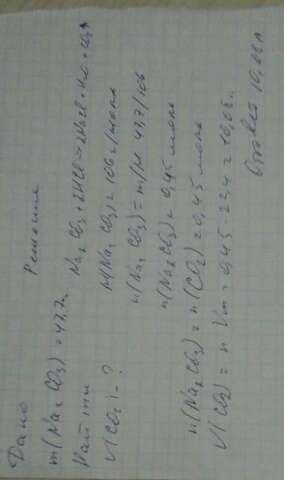 Дано
m(Na₂CO₃) = 47,7г
Найти
V(CO₂) - ?
Решение
Na₂CO₃ + 2HCl = 2NaCl + H₂O + CO₂↑
M(Na₂CO₃) = 106 г/моль
n(Na₂CO₃) = m/M 47,7/106
n(Na₂CO₃) = 0,45 моль
n(Na₂CO₃) = n(CO₂) = 0,45 моль
V(CO₂) = n Vm = 0,45 · 22,4 = 10,08л
Ответ 10,08л